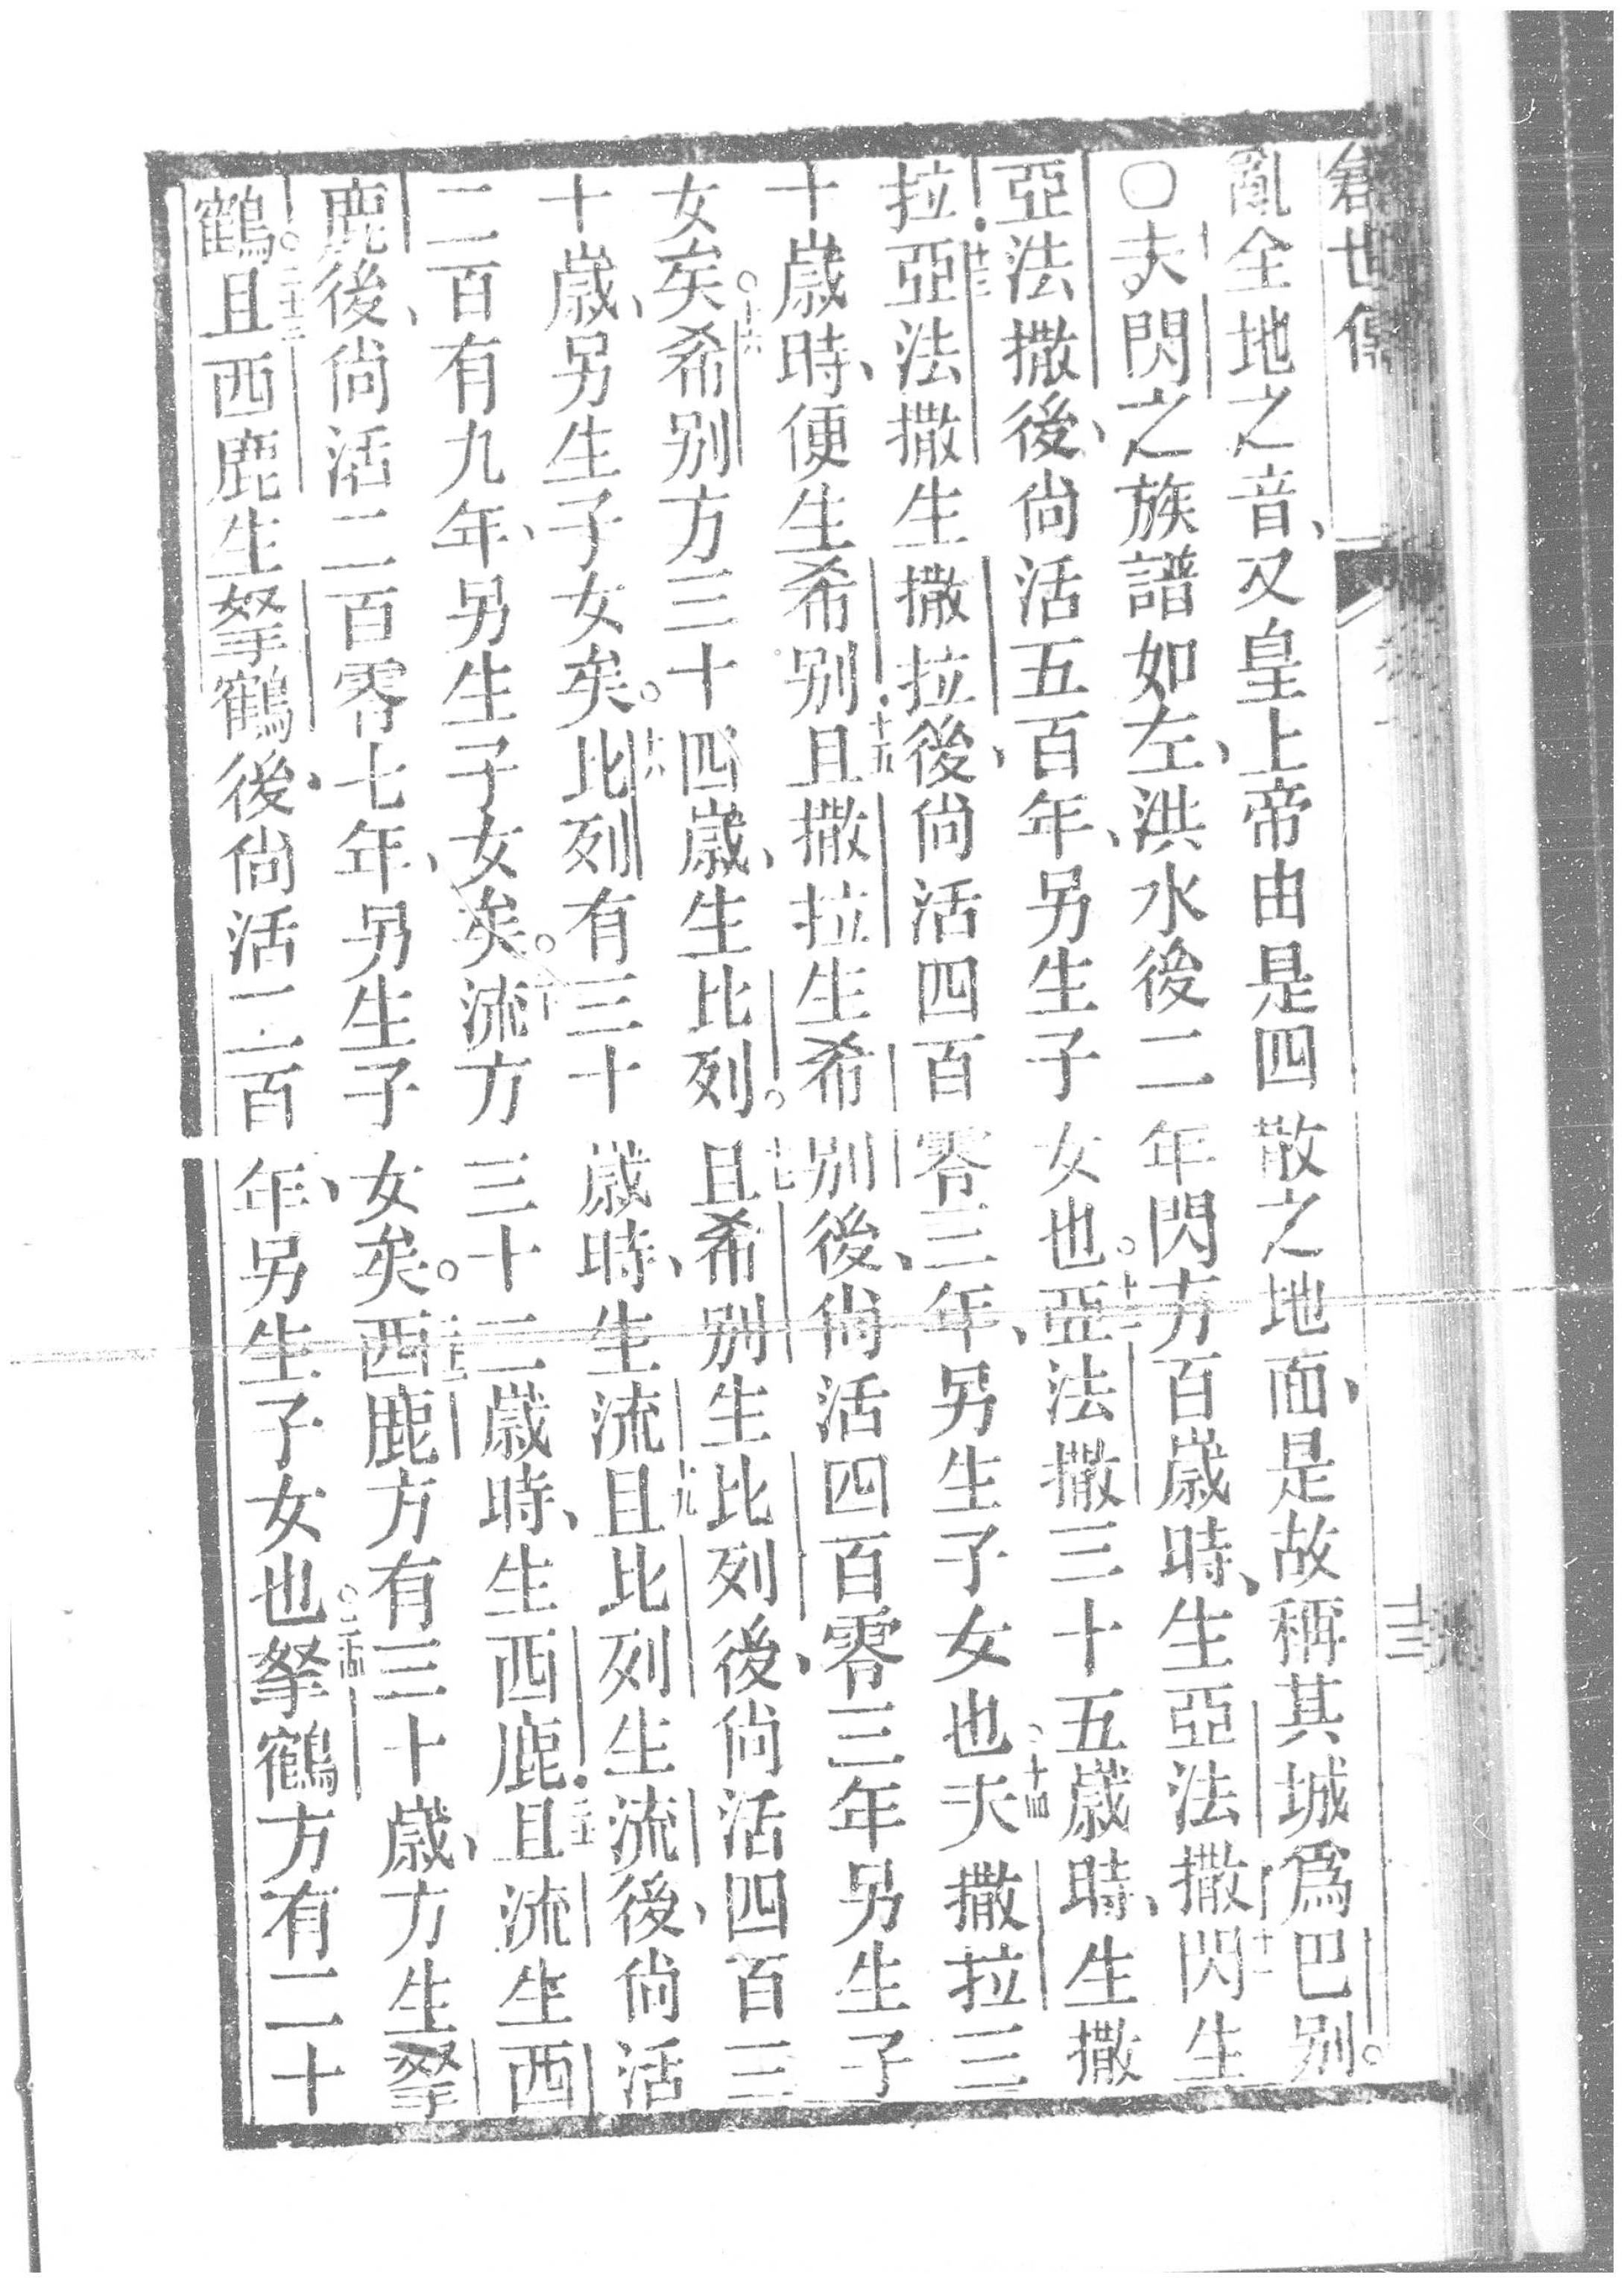 創世傳
十三
亂全地之音、又皇上帝由是四散之地面、是故稱其城爲巴别。
〇夫閃之族譜如左、洪水後二年閃方百歲時、生亞法撒十一閃生
亞法撒後、尙活五百年、另生子女也。十二亞法撒三十五歲時、生撒
拉十三亞法撒生撒拉後、尙活四百零三年、另生子女也。十四夫撒拉三
十歲時、便生希别十五且撒拉生希别後、尙活四百零三年另生子
女矣。十六希别方三十四歲、生比列。十七且希别生比列後、尙活四百三
十歲、另生子女矣。十八比列有三十歲時、生流十九且比列生流後、尙活
二百有九年、另生子女矣。二十流方三十二歲時、生西鹿二十一且流生西
鹿後、尙活二百零七年、另生子女矣。二十二西鹿方有三十歲、方生拏
鶴。二十三且西鹿生拏鶴後、尙活二百年、另生子女也。二十四拏鶴方有二十